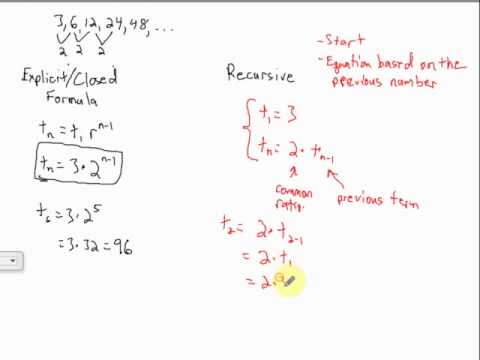 3, 6, 12, 24, 48, ...
2 2 2
Explicit/Closed
Formula
tₙ = t₁ rⁿ⁻¹
tₙ = 3 • 2ⁿ⁻¹
t₆ = 3 • 2⁵
= 3 • 32 = 96
Recursive
- Start
- Equation based on the
previous number
t₁ = 3
tₙ = 2 • tₙ₋₁
common
ratio
previous term
t₂ = 2 • t₂₋₁
= 2 • t₁
= 2 •